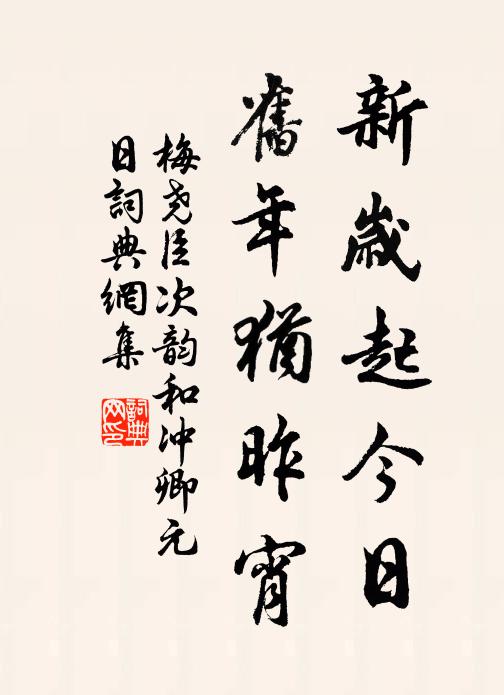 新歲起今日
舊年猶昨宵
梅尧臣次韵和冲卿元
日詞典網集
詞典
网印